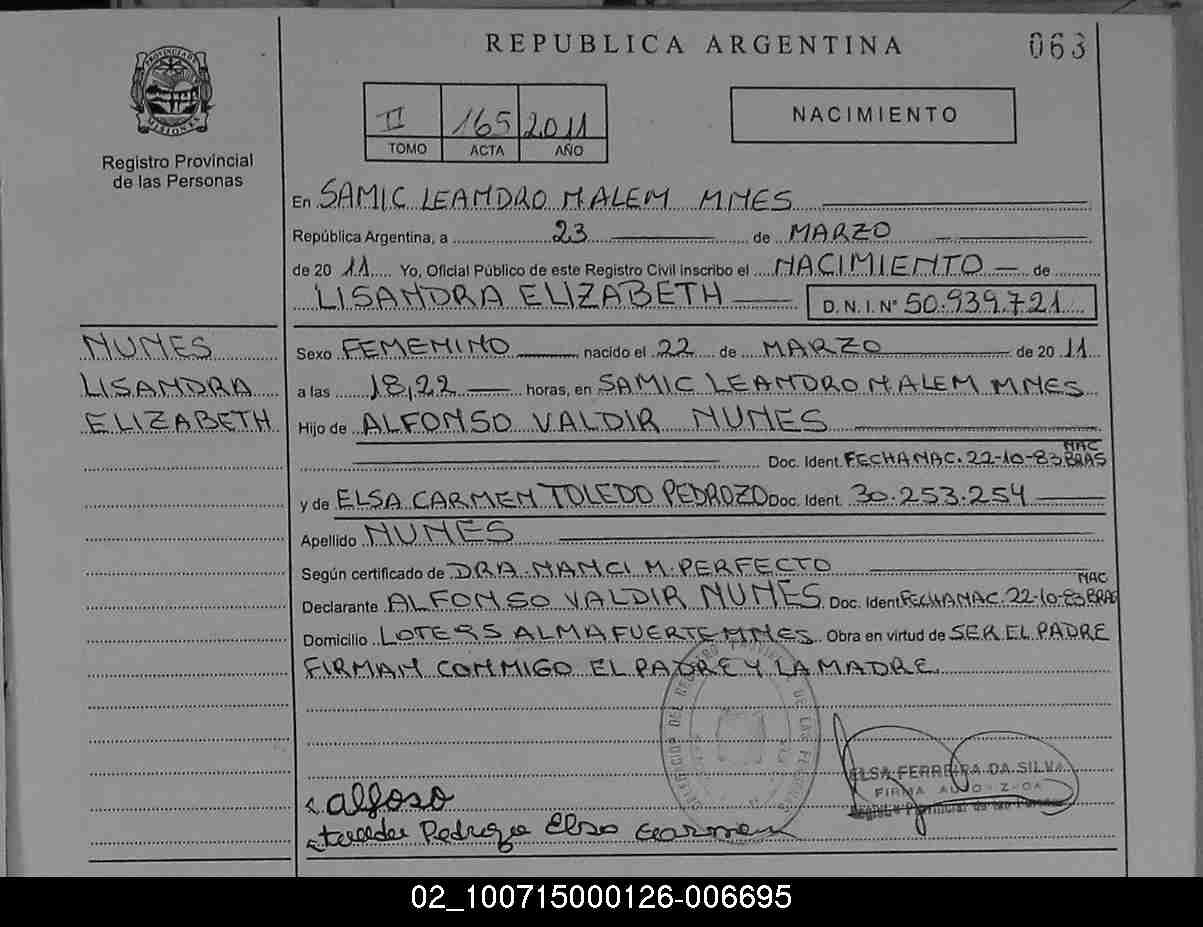 REPUBLICA ARGENTINA
063
PROVINCIA DE MISIONES
Registro Provincial
de las Personas
II 165 2.011
TOMO ACTA AÑO
NACIMIENTO
En SAMIC LEANDRO N. ALEM MNES
República Argentina, a 23 de MARZO
de 20 11 Yo, Oficial Público de este Registro Civil inscribo el NACIMIENTO de
LISANDRA ELIZABETH D. N. I. Nº 50.939.721
NUNES
LISANDRA
ELIZABETH
Sexo FEMENINO nacido el 22 de MARZO de 20 11
a las 18,22 horas, en SAMIC LEANDRO N. ALEM MNES
Hijo de ALFONSO VALDIR NUNES
Doc. Ident. FECHA NAC. 22-10-83 NAC BRAS
y de ELSA CARMEN TOLEDO PEDROZO Doc. Ident. 30.253.254
Apellido NUNES
Según certificado de DRA. NANCI M. PERFECTO
Declarante ALFONSO VALDIR NUNES Doc. Ident FECHA NAC. 22-10-83 NAC BRAS
Domicilio LOTE 95 ALMAFUERTE MNES. Obra en virtud de SER EL PADRE
FIRMAN CONMIGO EL PADRE Y LA MADRE
DIRECCION DEL REGISTRO PROVINCIAL DE LAS PERSONAS
ELSA FERREIRA DA SILVA
FIRMA AUTORIZADA
Registro Provincial de las Personas
alfoso
Pedrozo Elsa Carmen
02_100715000126-006695